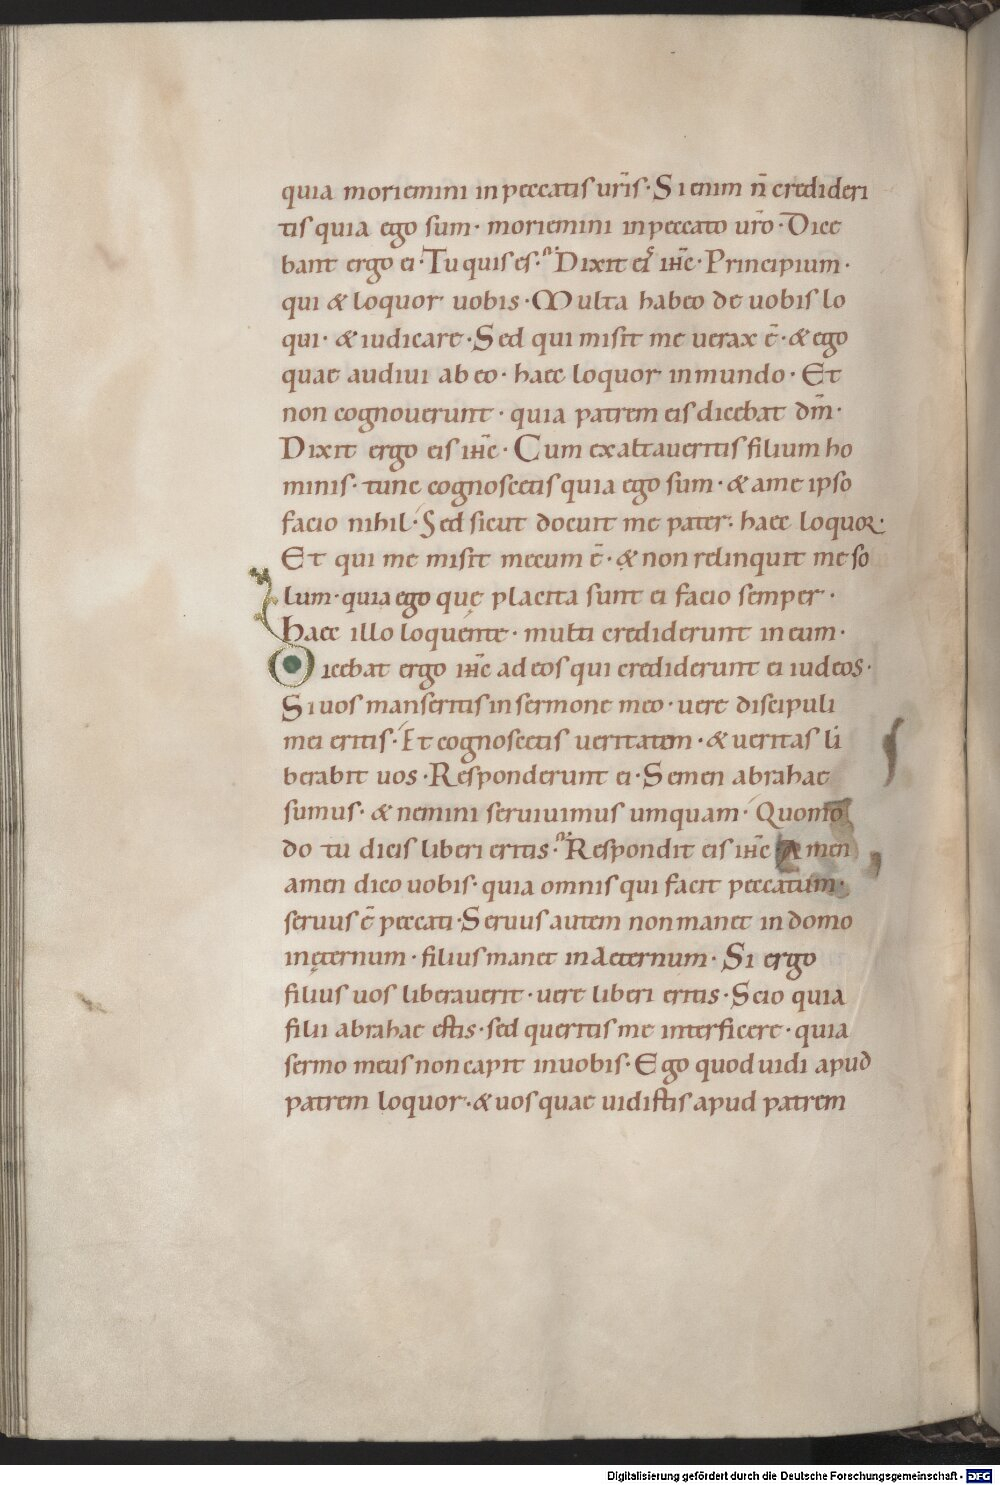 quia moriemini in peccatis ur̄is · Si enim n̄ credideri
tis quia ego sum · moriemini in peccato ur̄o · Dice
bant ergo ei · Tu quis es · Dixit eis ih̄c · Principium ·
qui & loquor uobis · Multa habeo de uobis lo
qui · & iudicare · Sed qui misit me uerax ē · & ego
quae audiui ab eo · haec loquor in mundo · Et
non cognouerunt · quia patrem eis dicebat dm̄ ·
Dixit ergo eis ih̄c · Cum exaltaueritis filium ho
minis · tunc cognoscetis quia ego sum · & a me ipso
facio nihil · Sed sicut docuit me pater · haec loquor ·
Et qui me misit mecum ē · & non relinquit me so
lum · quia ego que placita sunt ei facio semper ·
haec illo loquente · multi crediderunt in eum ·
Dicebat ergo ih̄c ad eos qui crediderunt ei iudeos ·
Si uos manseritis in sermone meo · uere discipuli
mei eritis · Et cognoscetis ueritatem · & ueritas li
berabit uos · Responderunt ei · Semen abrahae
sumus · & nemini seruiuimus umquam · Quomo
do tu dicis liberi eritis · Respondit eis ih̄c Amen
amen dico uobis · quia omnis qui facit peccatum ·
seruus ē peccati · Seruus autem non manet in domo
in ęternum · filius manet in aeternum · Si ergo
filius uos liberauerit · uere liberi eritis · Scio quia
filii abrahae estis · sed queritis me interficere · quia
sermo meus non capit in uobis · Ego quod uidi apud
patrem loquor · & uos quae uidistis apud patrem
Digitalisierung gefördert durch die Deutsche Forschungsgemeinschaft - DFG